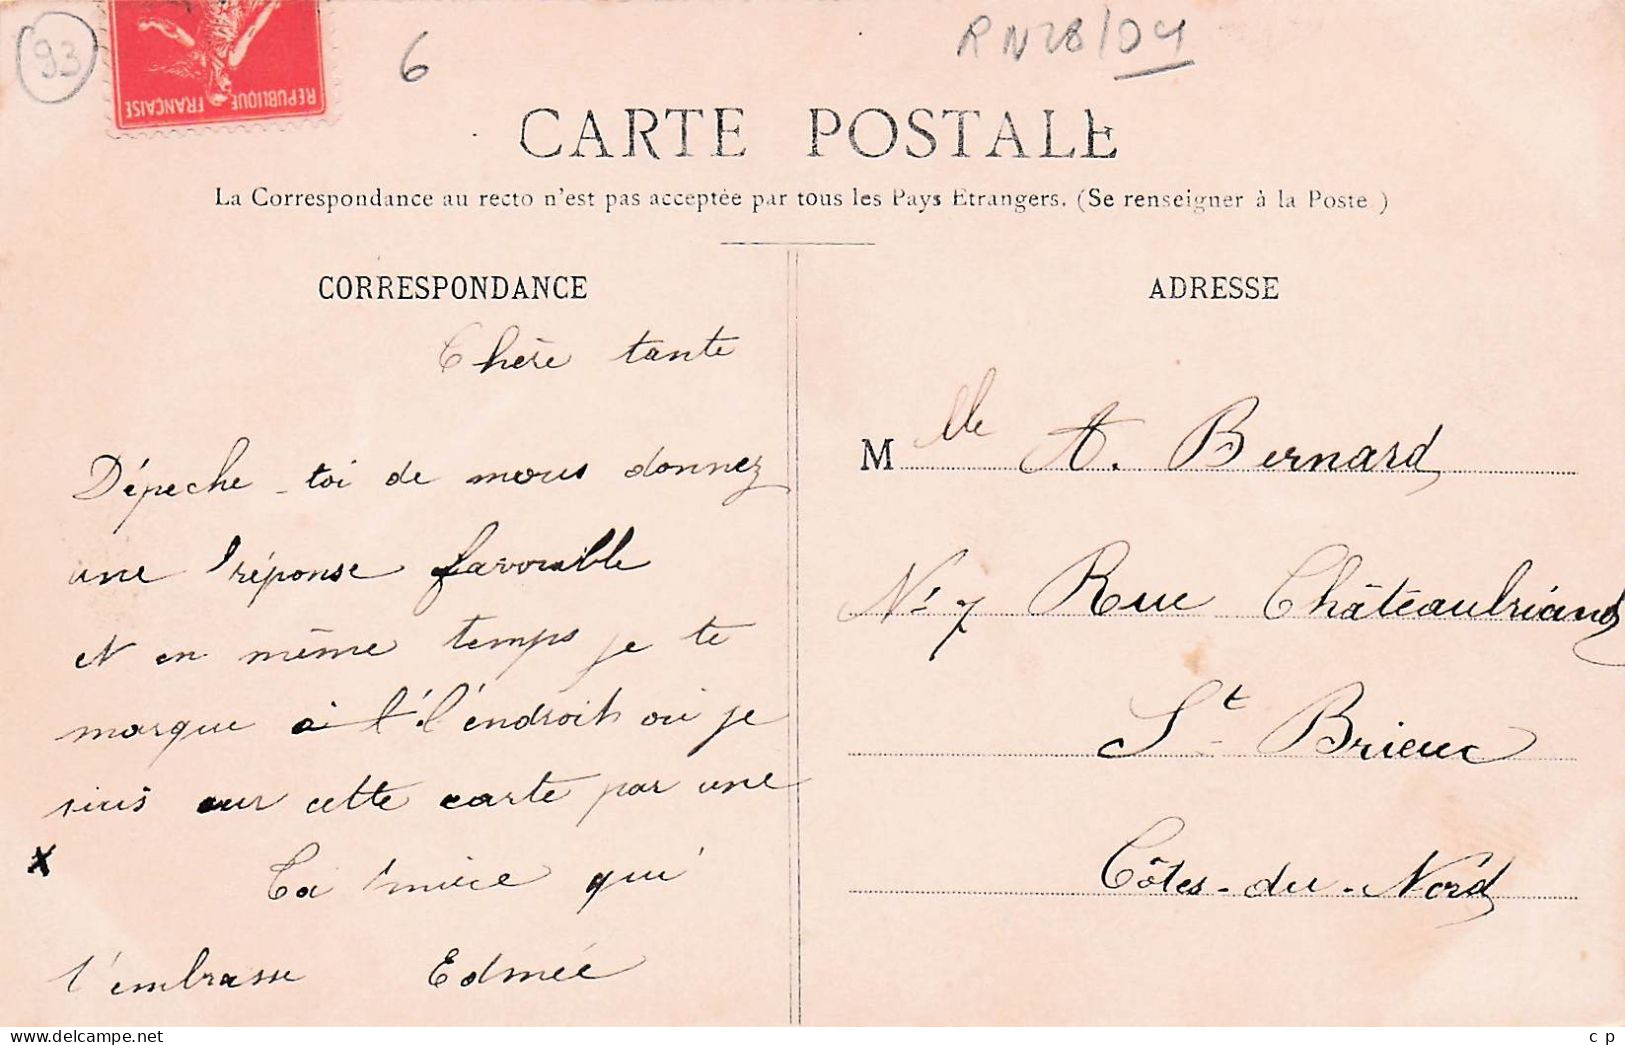 93
REPUBLIQUE FRANÇAISE
6
RN28/04
CARTE POSTALE
La Correspondance au recto n'est pas acceptée par tous les Pays Etrangers. (Se renseigner à la Poste.)
CORRESPONDANCE
Chère tante
Dépeche-toi de nous donnez
une réponse favorable
et en même temps je te
marque à l'endroit où je
suis sur cette carte par une
x
Ta nièce qui
t'embrasse Edmée
ADRESSE
Mlle A. Bernard
No 7 Rue Châteaubriand
St Brieuc
Côtes-du-Nord
www.delcampe.net
c p